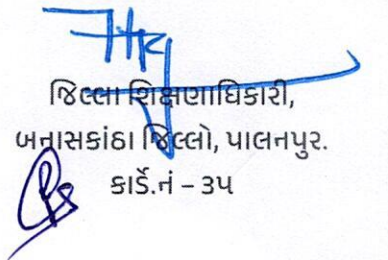 જિલ્લા શિક્ષણાધિકારી,
બનાસકાંઠા જિલ્લો, પાલનપુર.
કાર્ડે.નં – ૩૫